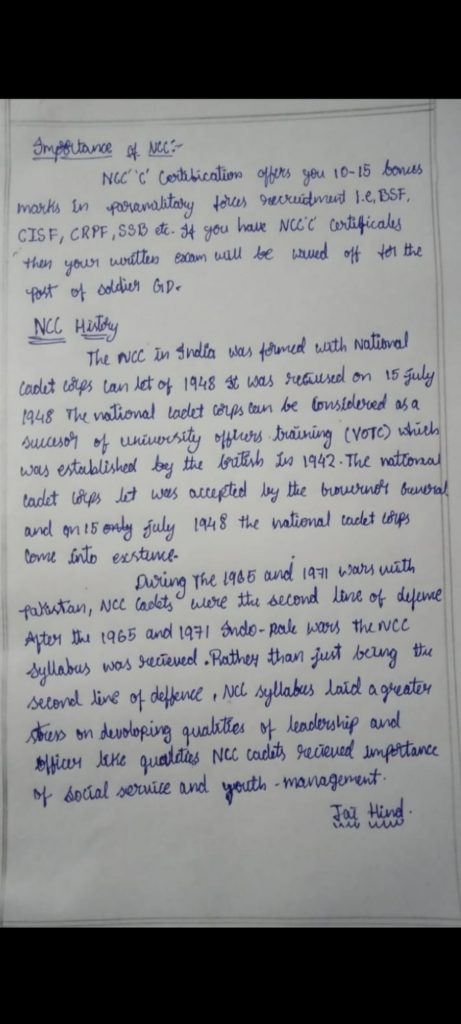 Importance of NCC:-
NCC 'C' Certibication offers you 10-15 bonus
marks in paramalitary forces recruidment I.e, BSF,
CISF, CRPF, SSB etc. If you have NCC'C' certificales
then your written exam will be waued off for the
post of soldier GD.
NCC History
The NCC in India was formed with National
cadet corps can let of 1948 It was reauised on 15 july
1948 The national cadet corps can be Considered as a
succesor of university officers training (VOTC) which
was established by the british In 1942. The national
cadet corps let was accepted by the
and on 15 only july 1948 the national cadet corps
come into exstence.
During The 1965 and 1971 wars with
pakistan, NCC Cadets were the second line of defene
After the 1965 and 1971 Indo-pak wars the NCC
syllabus was recieved. Rather than just being the
second line of deffence, NCC syllabus laid a greater
stress on devoloping qualities of leadership and
officer like qualities NCC cadets recieved importance
of social service and youth-management.
Jai Hind.